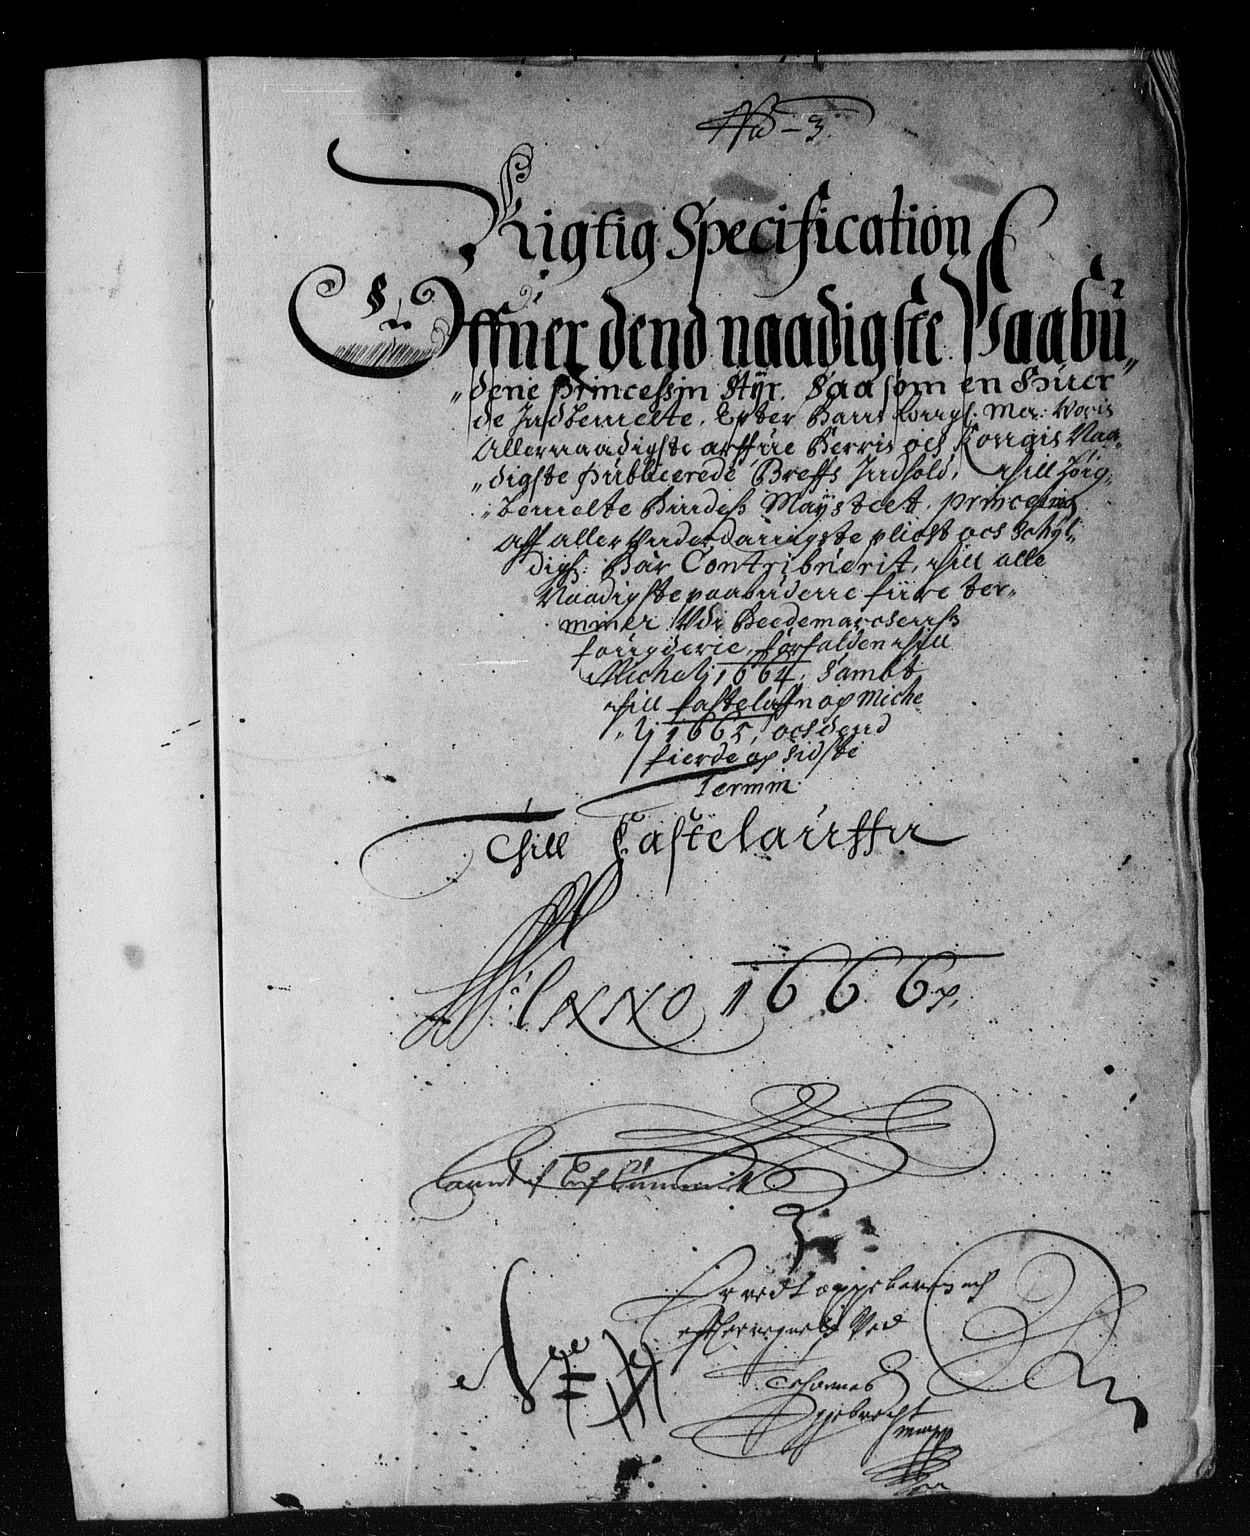 No — 3.
Rigtig Specification
Offuer dend naadigste Paabu„
„dene princessin Styr. Saasom en huer
de Indbemelte, Epter Hans Kongl: May: Voris
Allernaadigste arffue Herris och Kongis Naa„
„digste publicerede Breffs Indhold, thill
„bemelte Hindes Maysteet. princessin
aff aller Underdanigste plicht och Schyl„
dig: Har Contribuerit, thill alle
Naadigste paabudene fiire ter„
miner Udi Heedemarchens
fougderie, forfalden thill
Michelj 1664, Sambt
thill fastelaffn og Miche
„lj 1665, och dend
fierde og Sidste
Termin
Thill Fastelauffn
Anno 1666 p.
Er redt
Ved
Johannes